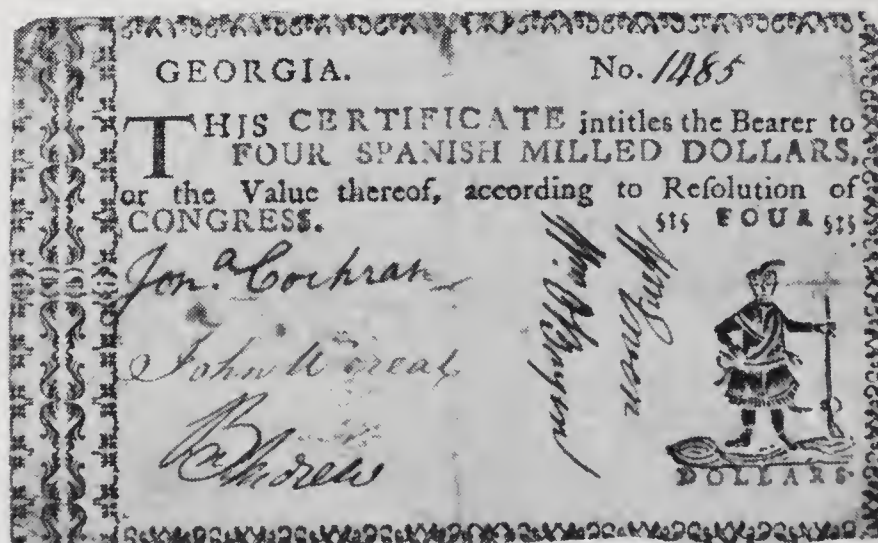 GEORGIA. No. 1485
THIS CERTIFICATE intitles the Bearer to
FOUR SPANISH MILLED DOLLARS,
or the Value thereof, according to Reſolution of
CONGRESS. FOUR
Jonª. Cochran
John
DOLLARS.